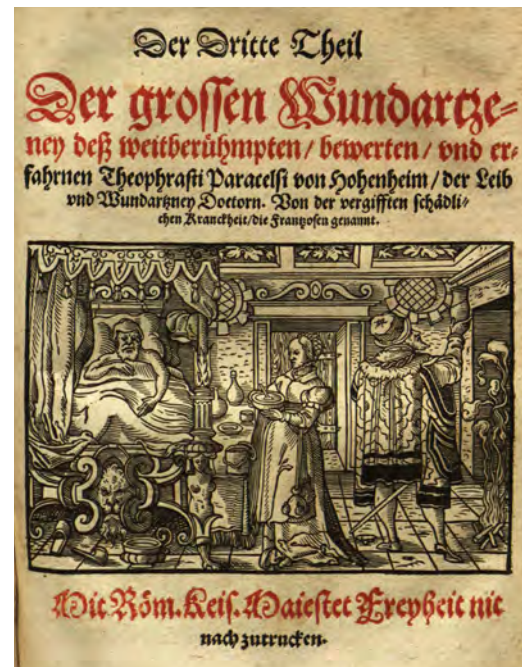 Der Dritte Theil
Der grossen Wundartze⸗
ney deß weitberühmpten / bewerten / vnd er⸗
fahrnen Theophrasti Paracelsi von Hohenheim / der Leib
vnd Wundartzney Doctorn. Von der vergifften schädli⸗
chen Kranckheit / die Frantzosen genannt.
Mit Röm. Keis. Maiestet Freyheit nit
nach zutrucken.